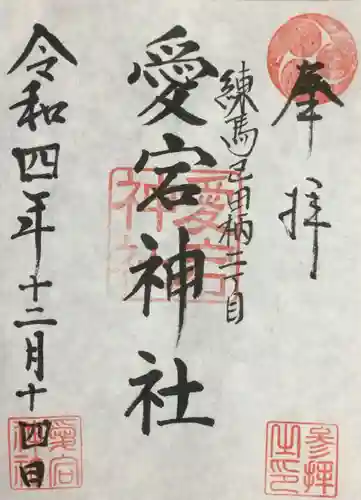 奉拝
練馬区田柄二丁目
愛宕神社
愛宕神社
令和四年十二月十四日
参拝之印
愛宕神社